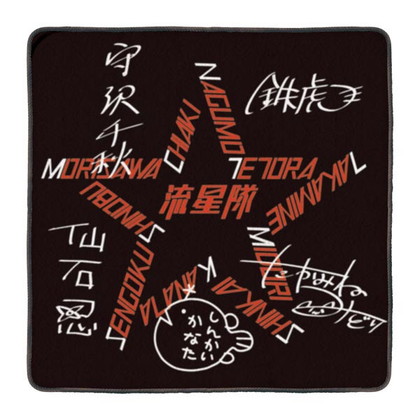 守沢千秋
NAGUMO
鉄虎
CHIAKI
MORISAWA
TETORA
TAKAMINE
流星隊
SHINOBU
SENGOKU
MIDORI
仙石忍
KANATA
SHINKAI
たかみね
しんかい
かなた